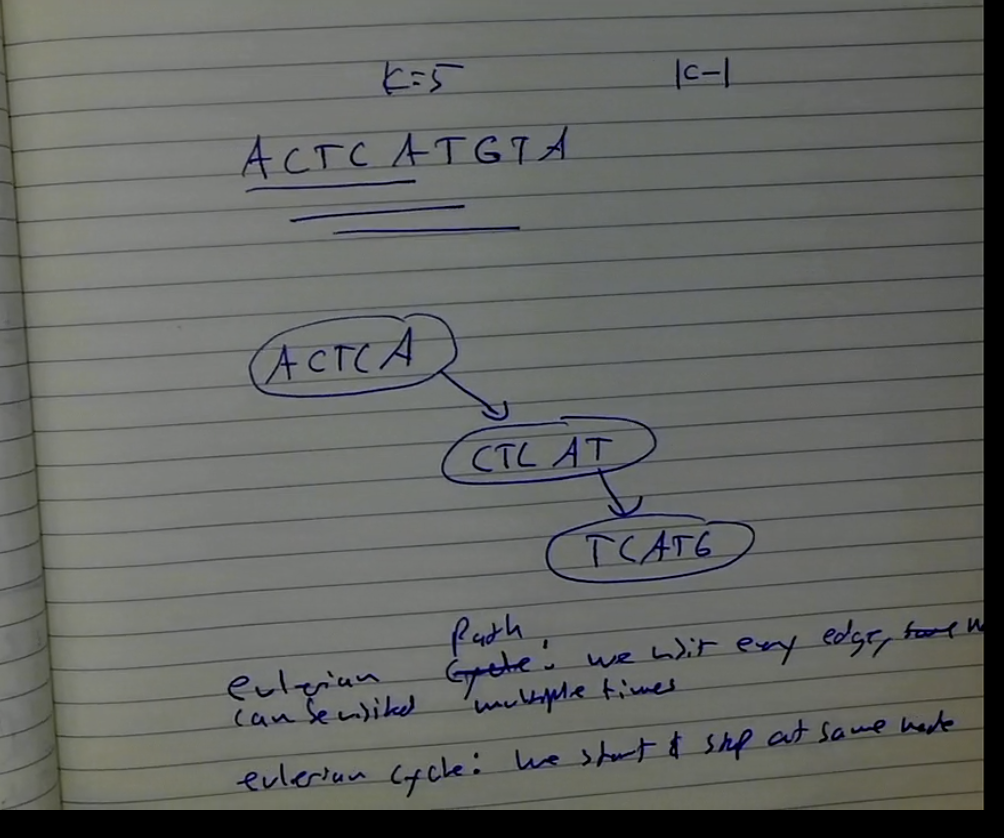 K=5 K-1
ACTCATGTA
ACTCA
CTCAT
TCATG
Path
eulerian Cycle: we visit every edge, some
can be visited multiple times
eulerian cycle: we start & stop at same node